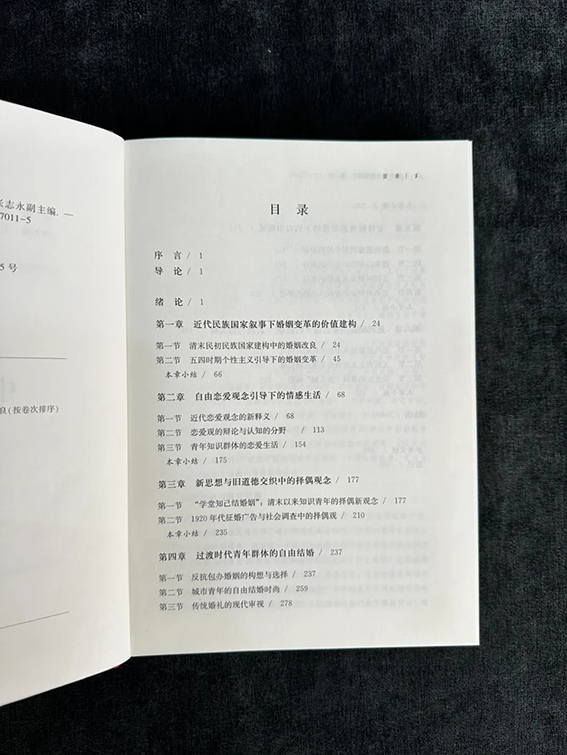 张志永副主编. —
7011-5
5 号
良(按卷次排序)
目 录
序 言 / 1
导 论 / 1
绪 论 / 1
第一章 近代民族国家叙事下婚姻变革的价值建构 / 24
第一节 清末民初民族国家建构中的婚姻改良 / 24
第二节 五四时期个性主义引导下的婚姻变革 / 45
本章小结 / 66
第二章 自由恋爱观念引导下的情感生活 / 68
第一节 近代恋爱观念的新释义 / 68
第二节 恋爱观的辩论与认知的分野 / 113
第三节 青年知识群体的恋爱生活 / 154
本章小结 / 175
第三章 新思想与旧道德交织中的择偶观念 / 177
第一节 “学堂知己结婚姻”：清末以来知识青年的择偶新观念 / 177
第二节 1920 年代征婚广告与社会调查中的择偶观 / 210
本章小结 / 235
第四章 过渡时代青年群体的自由结婚 / 237
第一节 反抗包办婚姻的构想与选择 / 237
第二节 城市青年的自由结婚时尚 / 259
第三节 传统婚礼的现代审视 / 278